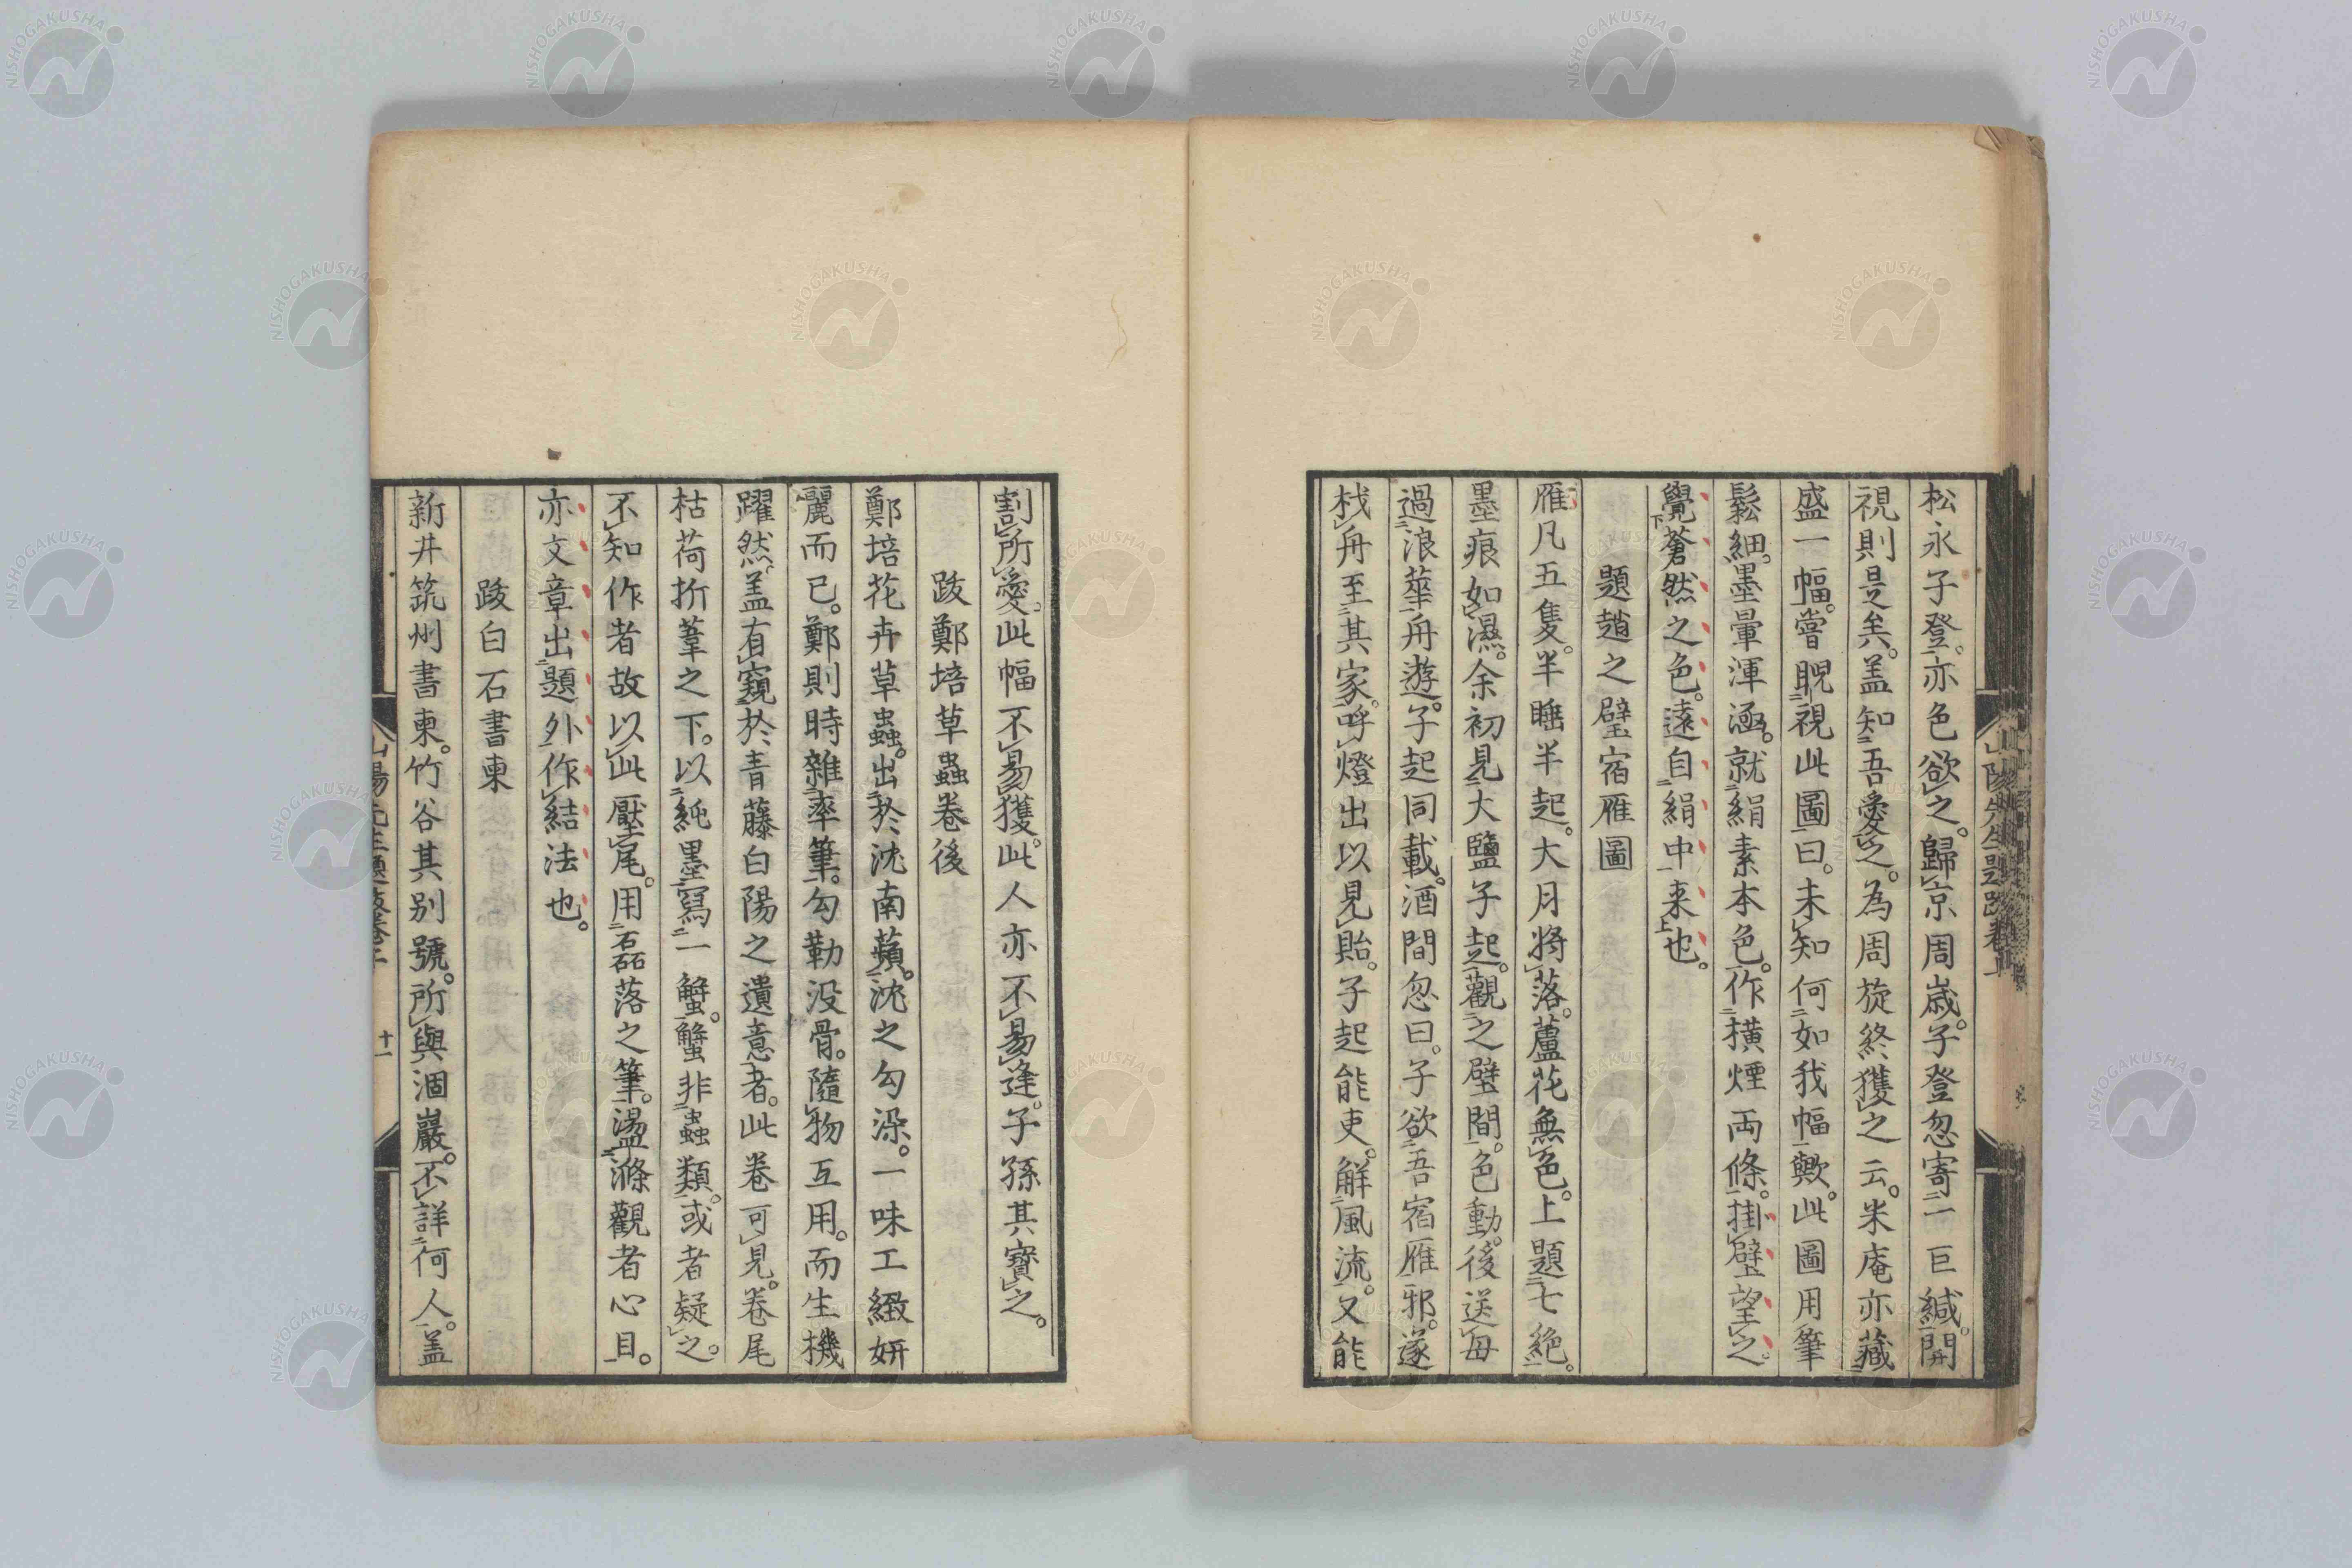 松永子登。亦色欲之。歸京周歲。子登忽寄一巨緘。開
視則是矣。盖知吾愛之。為周旋終獲之云。米庵亦藏
盛一幅。嘗睨視此圖曰。未知何如我幅歟。此圖用筆
鬆細。墨暈渾涵。就絹素本色。作橫煙兩條。掛壁望之。
覺蒼然之色。遠自絹中来也。
題趙之璧宿雁圖
雁凡五隻。半睡半起。大月將落。蘆花無色。上題七絶。
墨痕如濕。余初見大鹽子起。觀之壁間。色動。後送母
過浪華舟遊。子起同載。酒間忽曰。子欲吾宿雁邪。遂
棧舟至其家。呼燈出以見貽。子起能吏。解風流。又能
割所愛。此幅不易獲。此人亦不易逢。子孫其寶之。
跋鄭培草蟲卷後
鄭培花卉草蟲。出於沈南蘋。沈之勾染。一味工緻妍
麗而已。鄭則時雜率筆。勾勒没骨。隨物互用。而生機
躍然。盖有窺於青藤白陽之遺意者。此卷可見。卷尾
枯荷折葦之下。以純墨寫一蟹。蟹非蟲類。或者疑之。
不知作者故以此壓尾。用磊落之筆。盪滌觀者心目。
亦文章出題外作結法也。
跋白石書柬
新井筑州書柬。竹谷其别號。所與涸巖。不詳何人。盖
山陽先生題跋卷上
十一
NISHOGAKUSHA